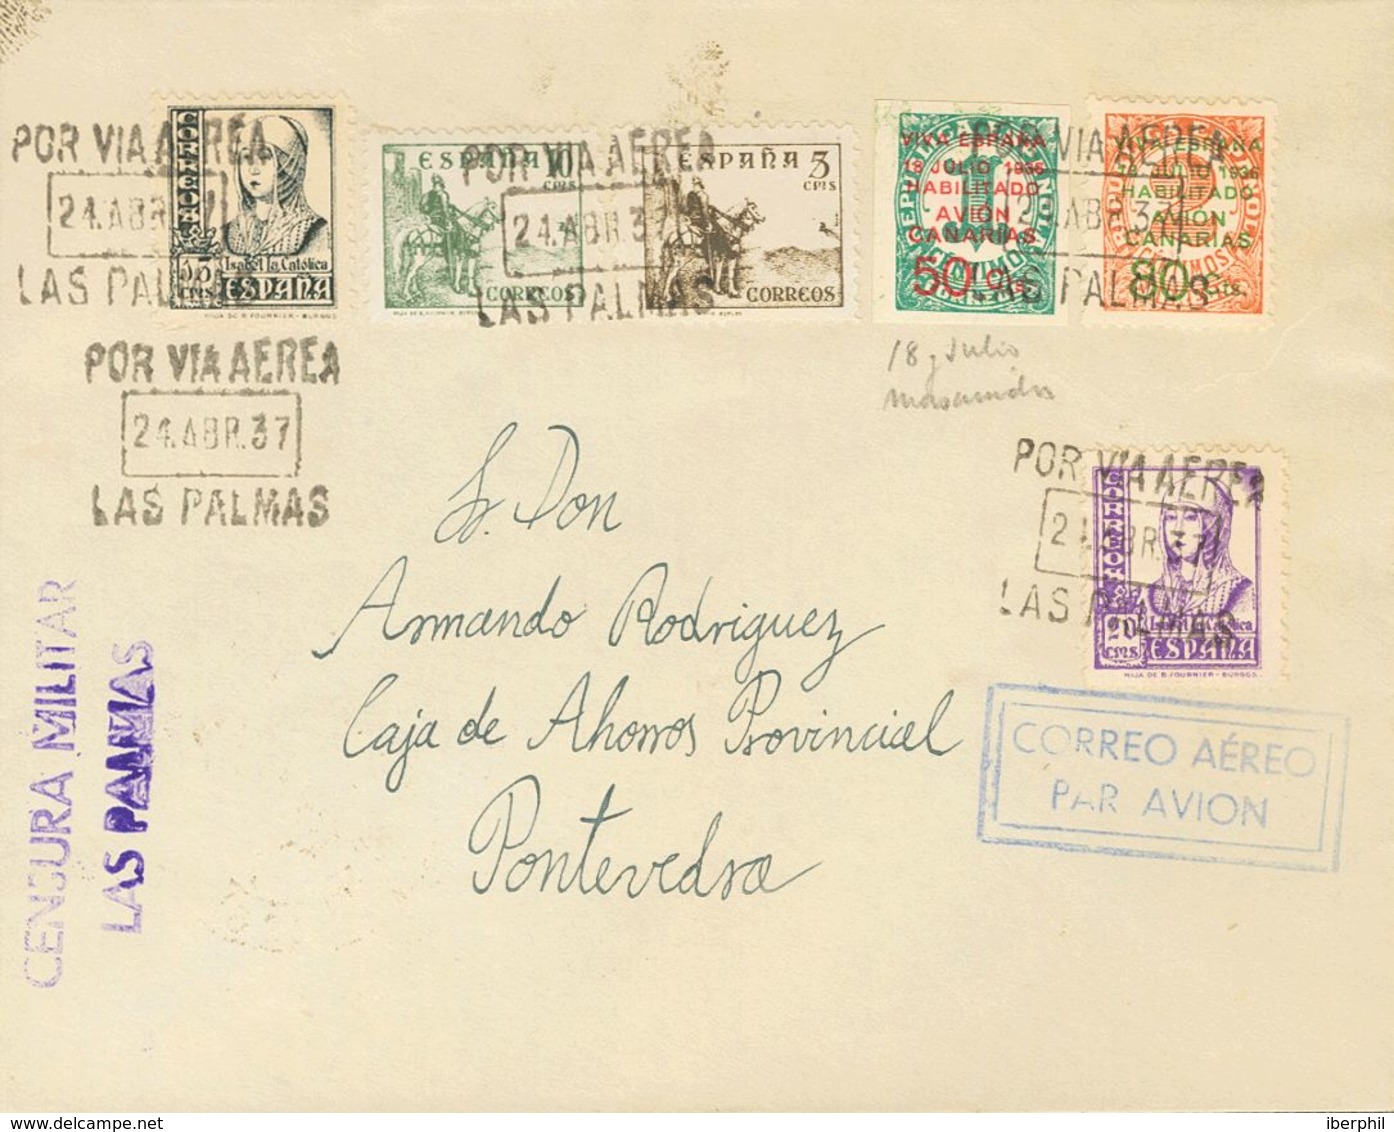 POR VIA AEREA
24.ABR.37
LAS PALMAS
CORREOS
15 CTMS
Isabel la Católica
ESPAÑA
HIJA DE B. FOURNIER - BURGOS
ESPAÑA 10 CTMS
CORREOS
POR VIA AEREA
24.ABR.37
LAS PALMAS
ESPAÑA 5 CTMS
CORREOS
VIVA ESPAÑA
18 JULIO 1936
HABILITADO
AVIÓN
CANARIAS
50 Cts.
VIVA ESPAÑA
18 JULIO 1936
HABILITADO
AVIÓN
CANARIAS
80 Cts.
POR VIA AEREA
ABR.37
LAS PALMAS
18, Julio
POR VIA AEREA
24.ABR.37
LAS PALMAS
POR VIA AEREA
24.ABR.37
LAS PALMAS
CORREOS
20 CTMS
Isabel la Católica
ESPAÑA
HIJA DE B. FOURNIER - BURGOS
Sr. Don
Armando Rodriguez
Caja de Ahorros Provincial
Pontevedra
CENSURA MILITAR
LAS PALMAS
CORREO AÉREO
PAR AVION
delcampe.net
iberphil